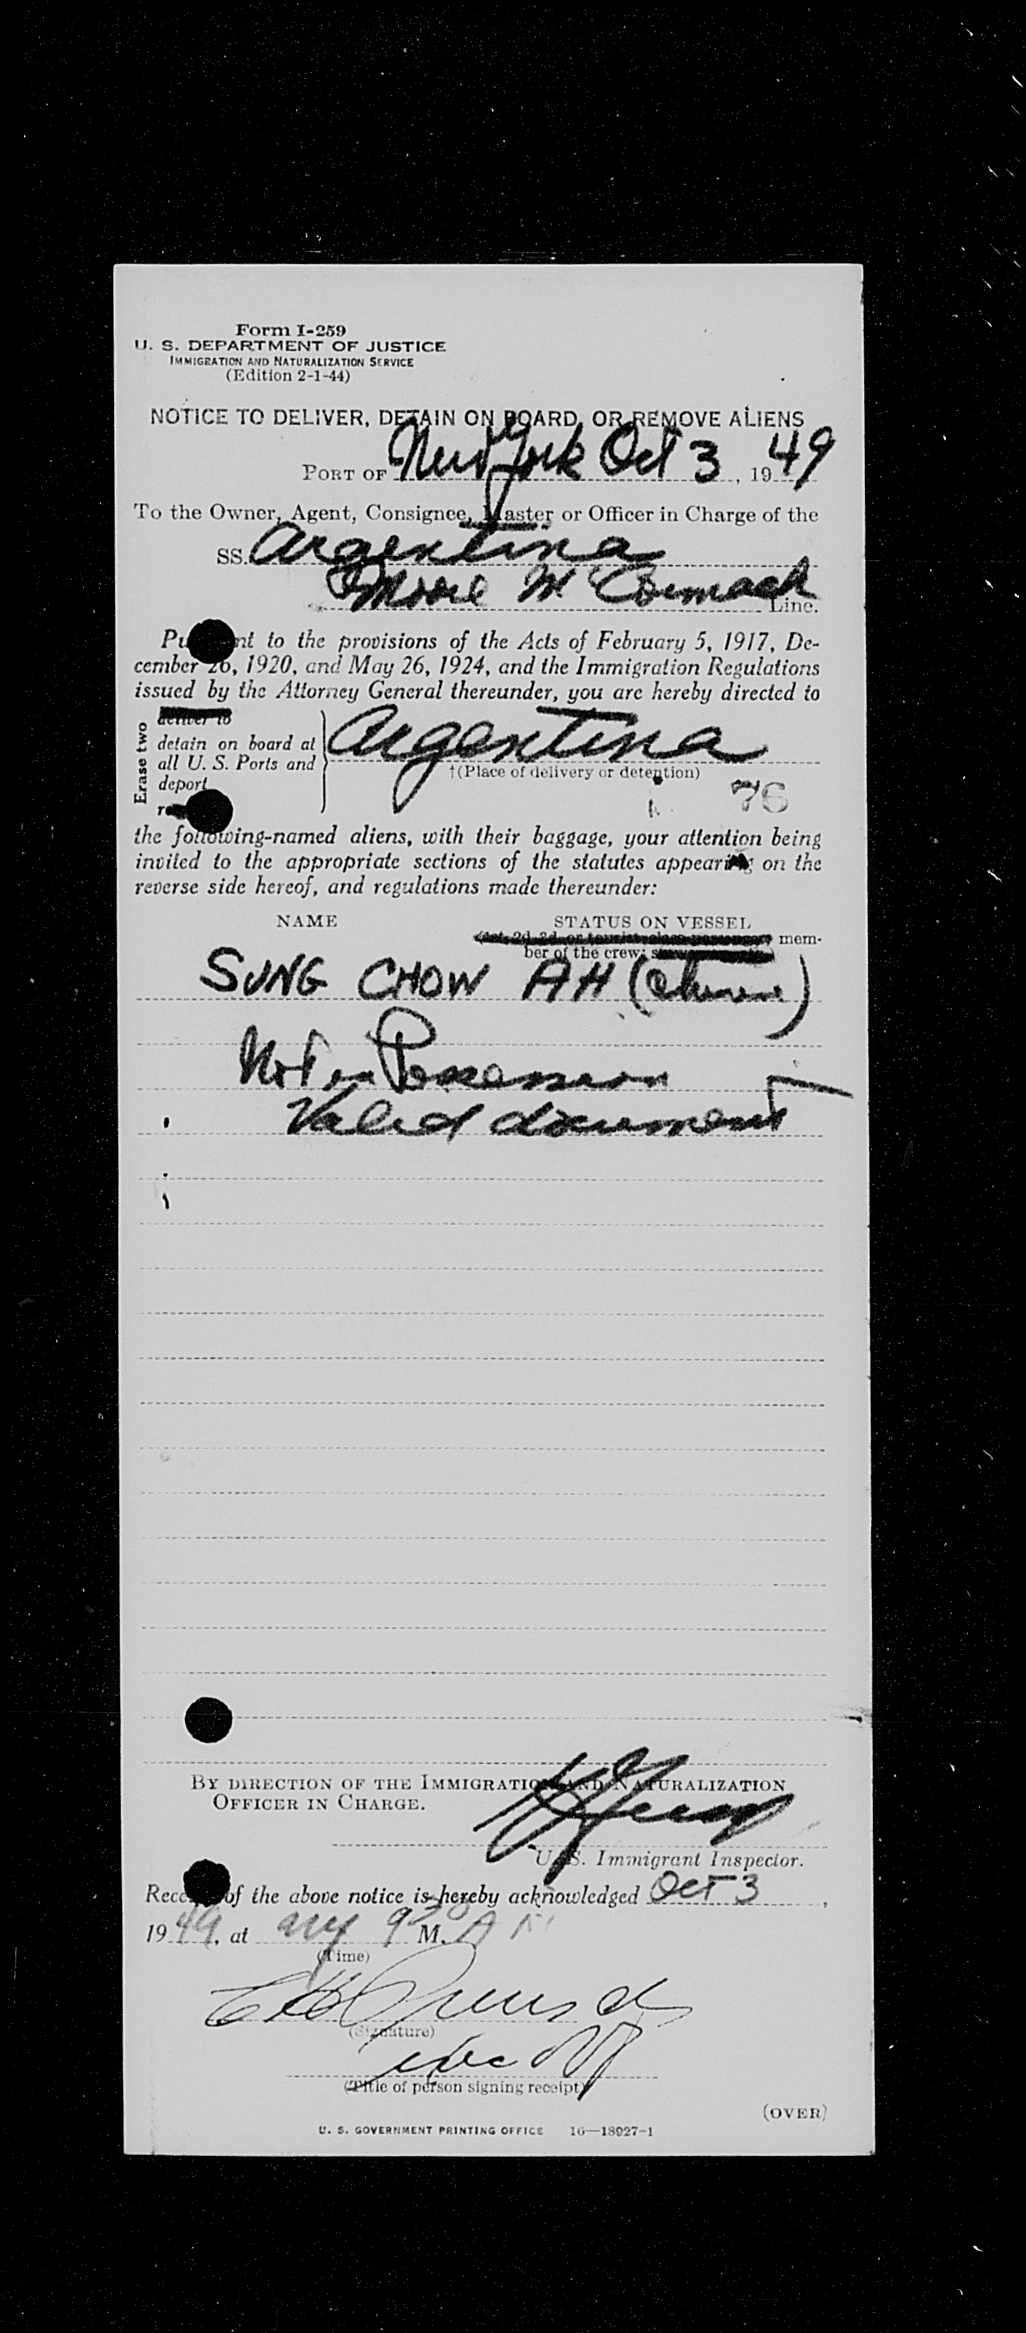 Form I-259
U. S. DEPARTMENT OF JUSTICE
IMMIGRATION AND NATURALIZATION SERVICE
(Edition 2-1-44)
NOTICE TO DELIVER, DETAIN ON BOARD, OR REMOVE ALIENS
PORT OF New York Oct 3, 1949
To the Owner, Agent, Consignee, Master or Officer in Charge of the
SS. Argentina
Moore McCormack Line.
nt to the provisions of the Acts of February 5, 1917, De-
cember 26, 1920, and May 26, 1924, and the Immigration Regulations
issued by the Attorney General thereunder, you are hereby directed to
Erase two
deliver to
detain on board at
all U. S. Ports and
deport
Argentina
†(Place of delivery or detention)
76
the following-named aliens, with their baggage, your attention being
invited to the appropriate sections of the statutes appearing on the
reverse side hereof, and regulations made thereunder:
NAME STATUS ON VESSEL
(1st, 2d, 3d, or tourist class passenger, mem-
ber of the crew;
SUNG CHOW AH (Chinese)
Not in Possession
Valid document
BY DIRECTION OF THE IMMIGRATION AND NATURALIZATION
OFFICER IN CHARGE.
U. S. Immigrant Inspector.
of the above notice is hereby acknowledged Oct 3,
1949, at NY 9 30 M. A
(Time)
(Signature)
(Title of person signing receipt)
(OVER)
U. S. GOVERNMENT PRINTING OFFICE 16—18927-1